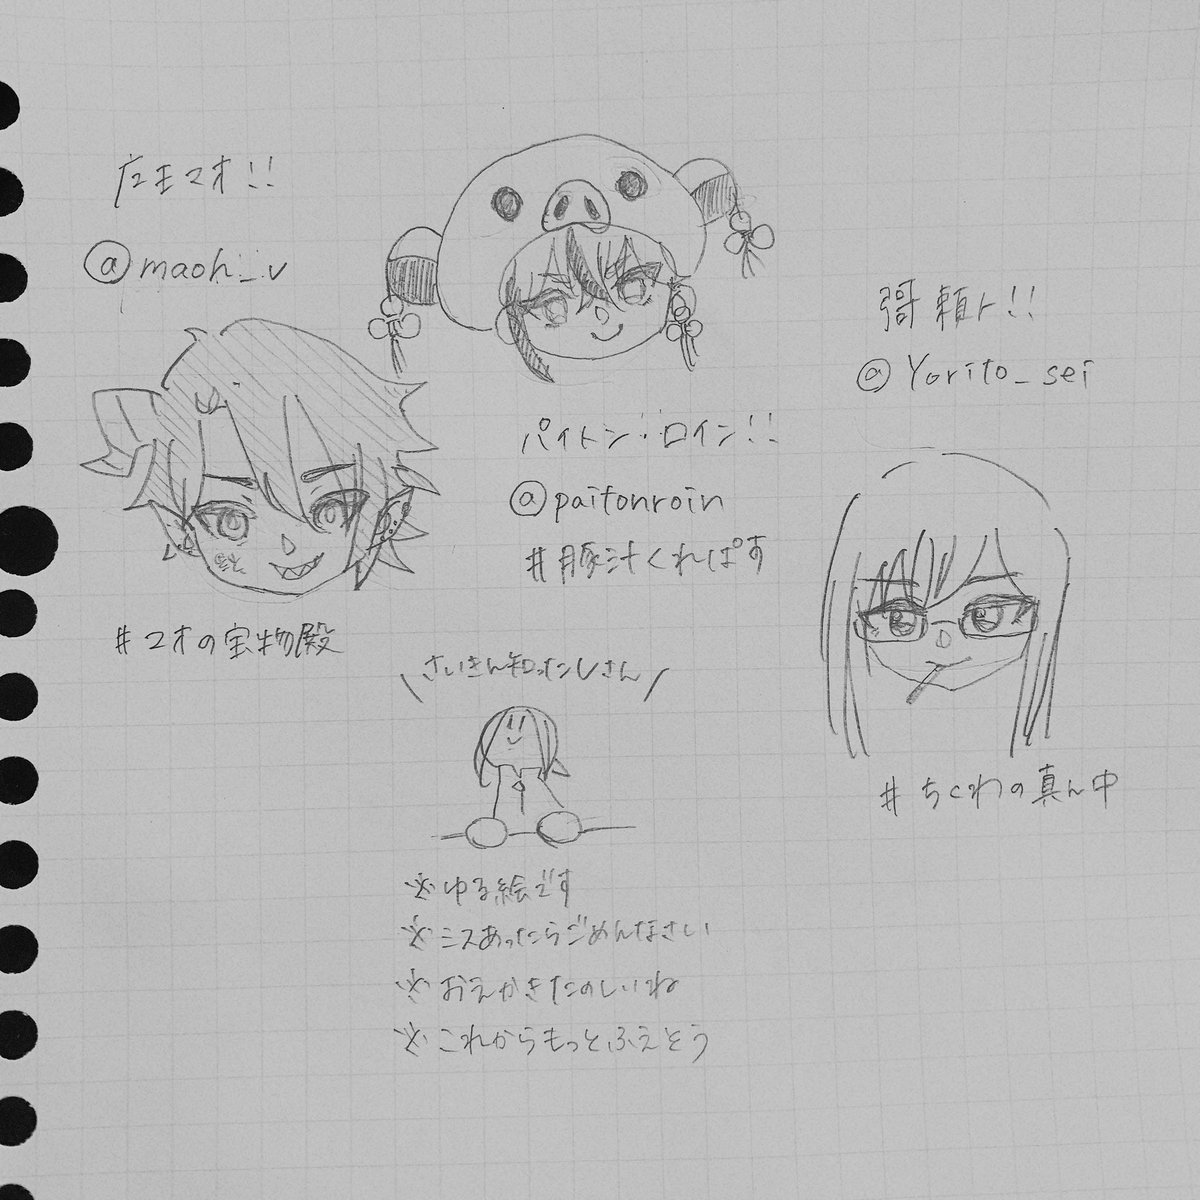 王マオ!!
@maoh_v
#マオの宝物殿
パイトン・ロイン!!
@paitonroin
#豚汁くれぱす
頼ト!!
@Yorito_sei
#ちくわの真ん中
\さいきん知ったVさん/
※ゆる絵です
※ミスあったらごめんなさい
※おえかきたのしいね
※これからもっとふえそう